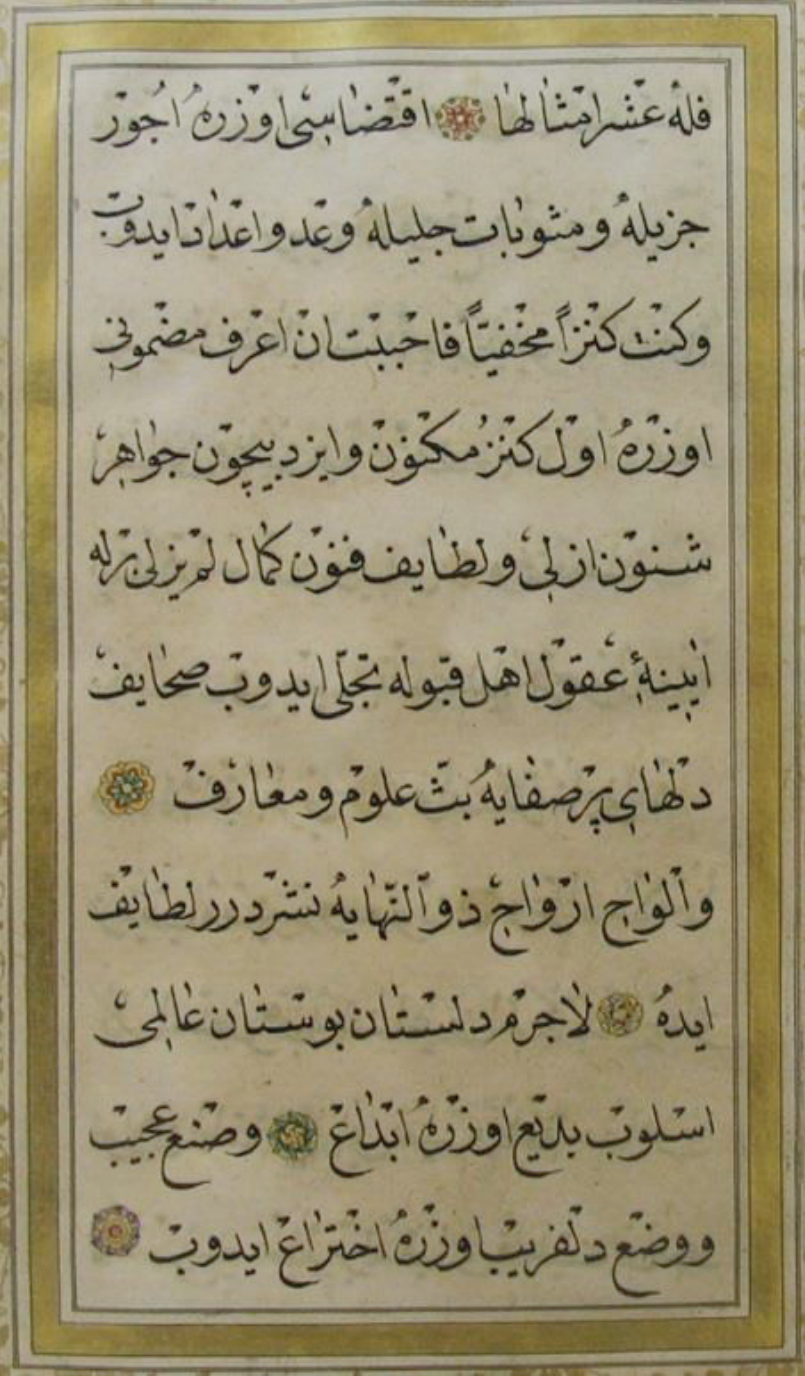 فله عشر امثالها اقتضاسی اوزره اجور
جزیله و مثوبات جلیله وعد و اعداد ایدوب
وكنت كنزاً مخفيّاً فاحببت ان اعرف مضمونی
اوزره اول كنز مكنون وایزد بیچون جواهر
شئون ازلی و لطایف فنون كمال لم یزلی برله
ایینهٔ عقول اهل قبوله تجلّی ایدوب صحایف
دلهای پر صفایه بثّ علوم و معارف
و الواح ارواح ذو النّهایه نشر درر لطایف
ایده لاجرم دلستان بوستان عالمی
اسلوب بدیع اوزره ابداع و صنع عجیب
و وضع دلفریب اوزره اختراع ایدوب